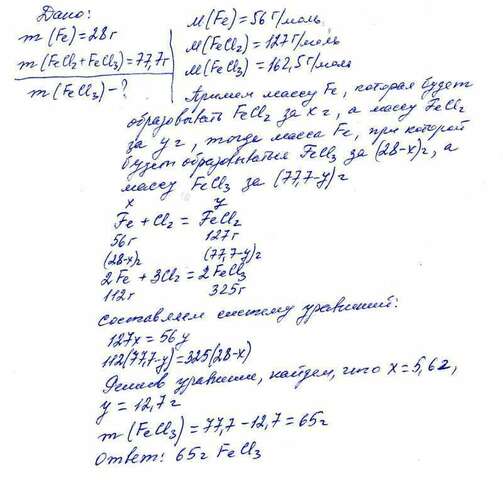 Дано:
m(Fe)=28г
m(FeCl2+FeCl3)=77,7г
m(FeCl3)-?
M(Fe)=56г/моль
M(FeCl2)=127г/моль
M(FeCl3)=162,5г/моль
Примем массу Fe, которая будет
образовывать FeCl2 за x г, а массу FeCl2
за y г, тогда масса Fe, при которой
будет образовываться FeCl3 за (28-x)г, а
массу FeCl3 за (77,7-y)г
x y
Fe + Cl2 = FeCl2
56г 127г
(28-x)г (77,7-y)г
2Fe + 3Cl2 = 2FeCl3
112г 325г
Составляем систему уравнений:
127x = 56y
112(77,7-y)=325(28-x)
Решив уравнение, найдем, что x = 5,6г,
y = 12,7г
m(FeCl3)=77,7-12,7=65г
Ответ: 65г FeCl3